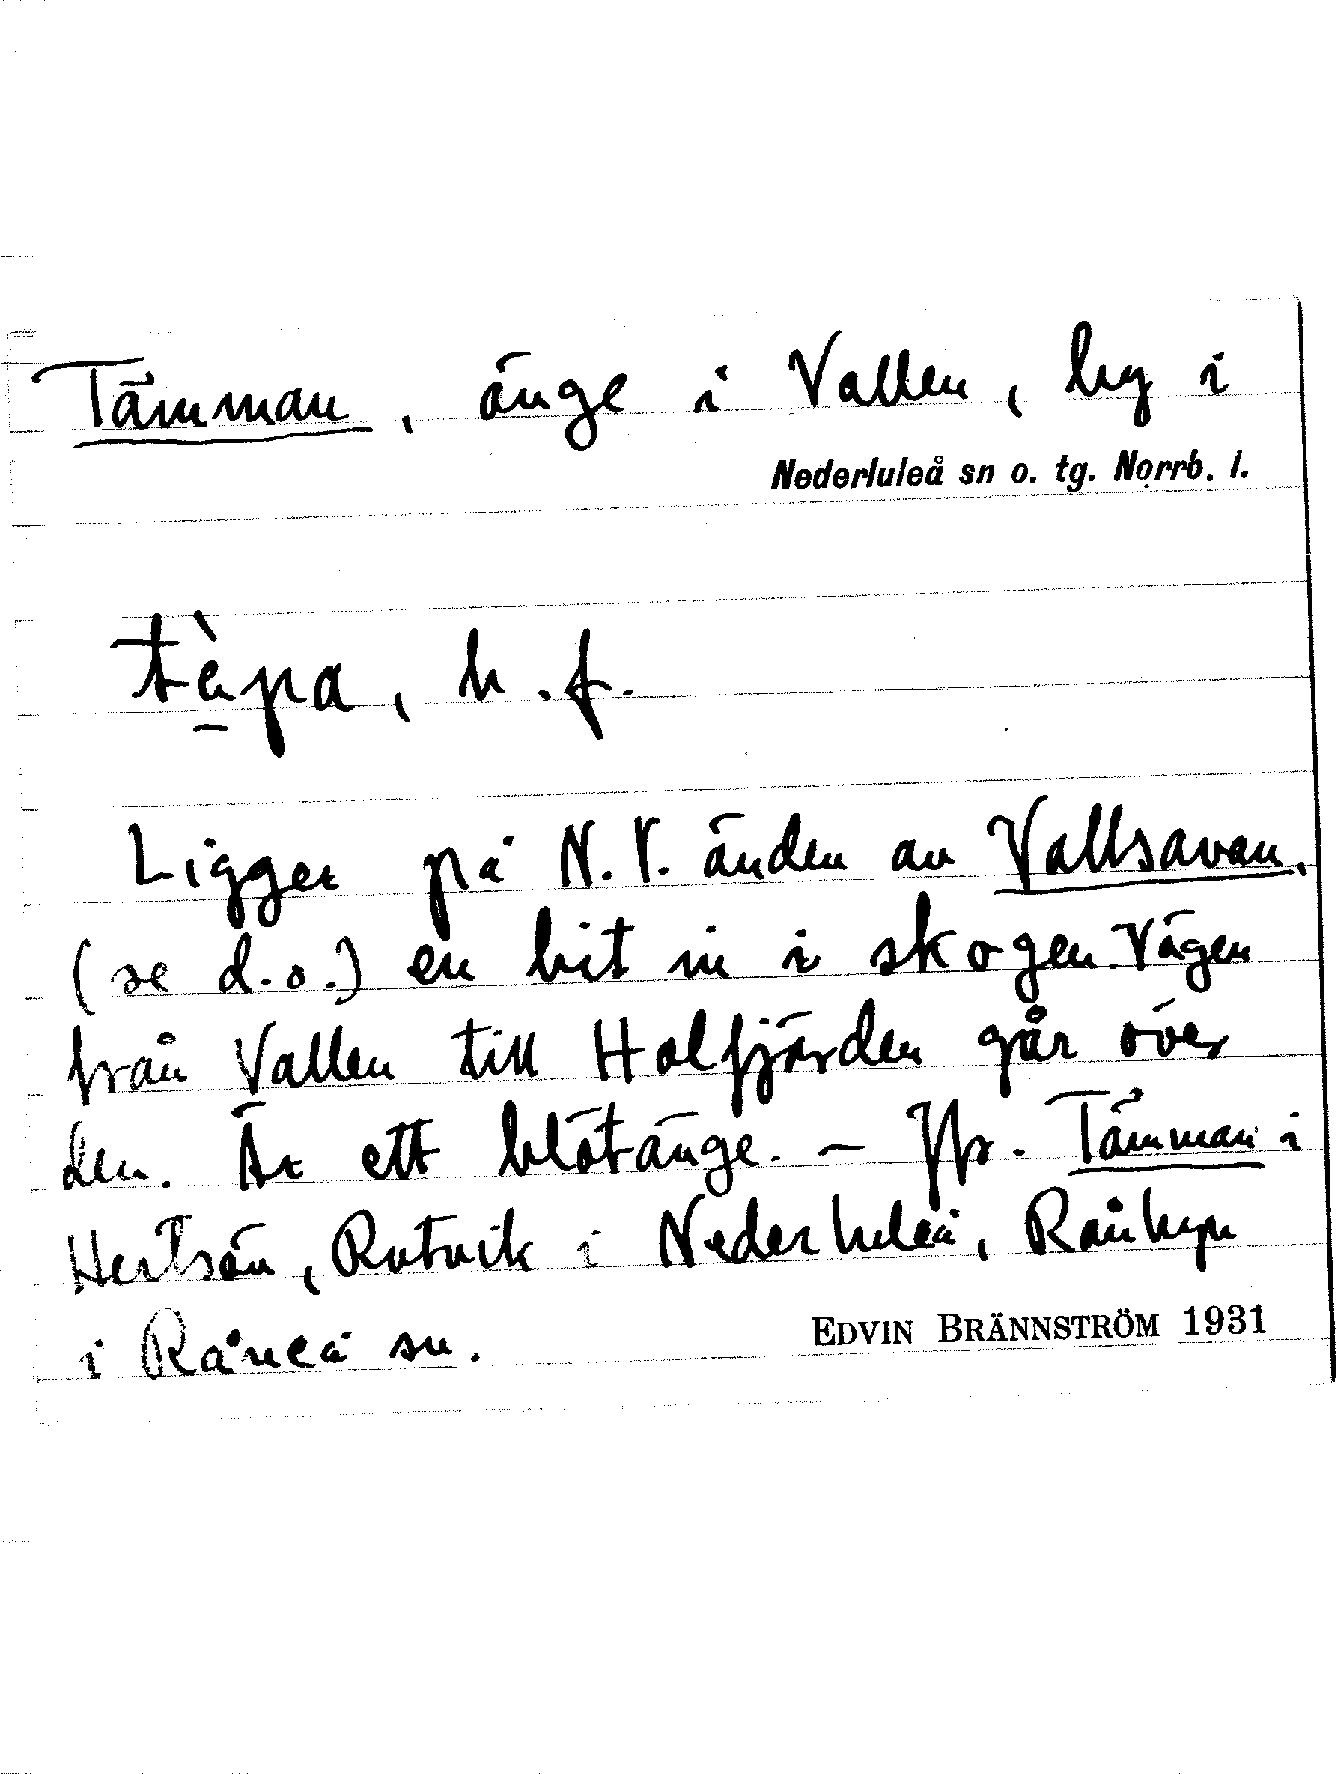 Tämman, änge i Vallen, by i
Nederluleå sn o. tg. Norrb. l.
tèpa, b. f.
Ligger på N.V. änden av Vallsavan.
(se d.o.) en bit in i skogen. Vägen
från Vallen till Holfjärden går över
den. Är ett blötänge. – Jfr. Tämman i
Hertsön, Rutvik i Nederluleå, Rånbyn
i Råneå sn.
EDVIN BRÄNNSTRÖM 1931